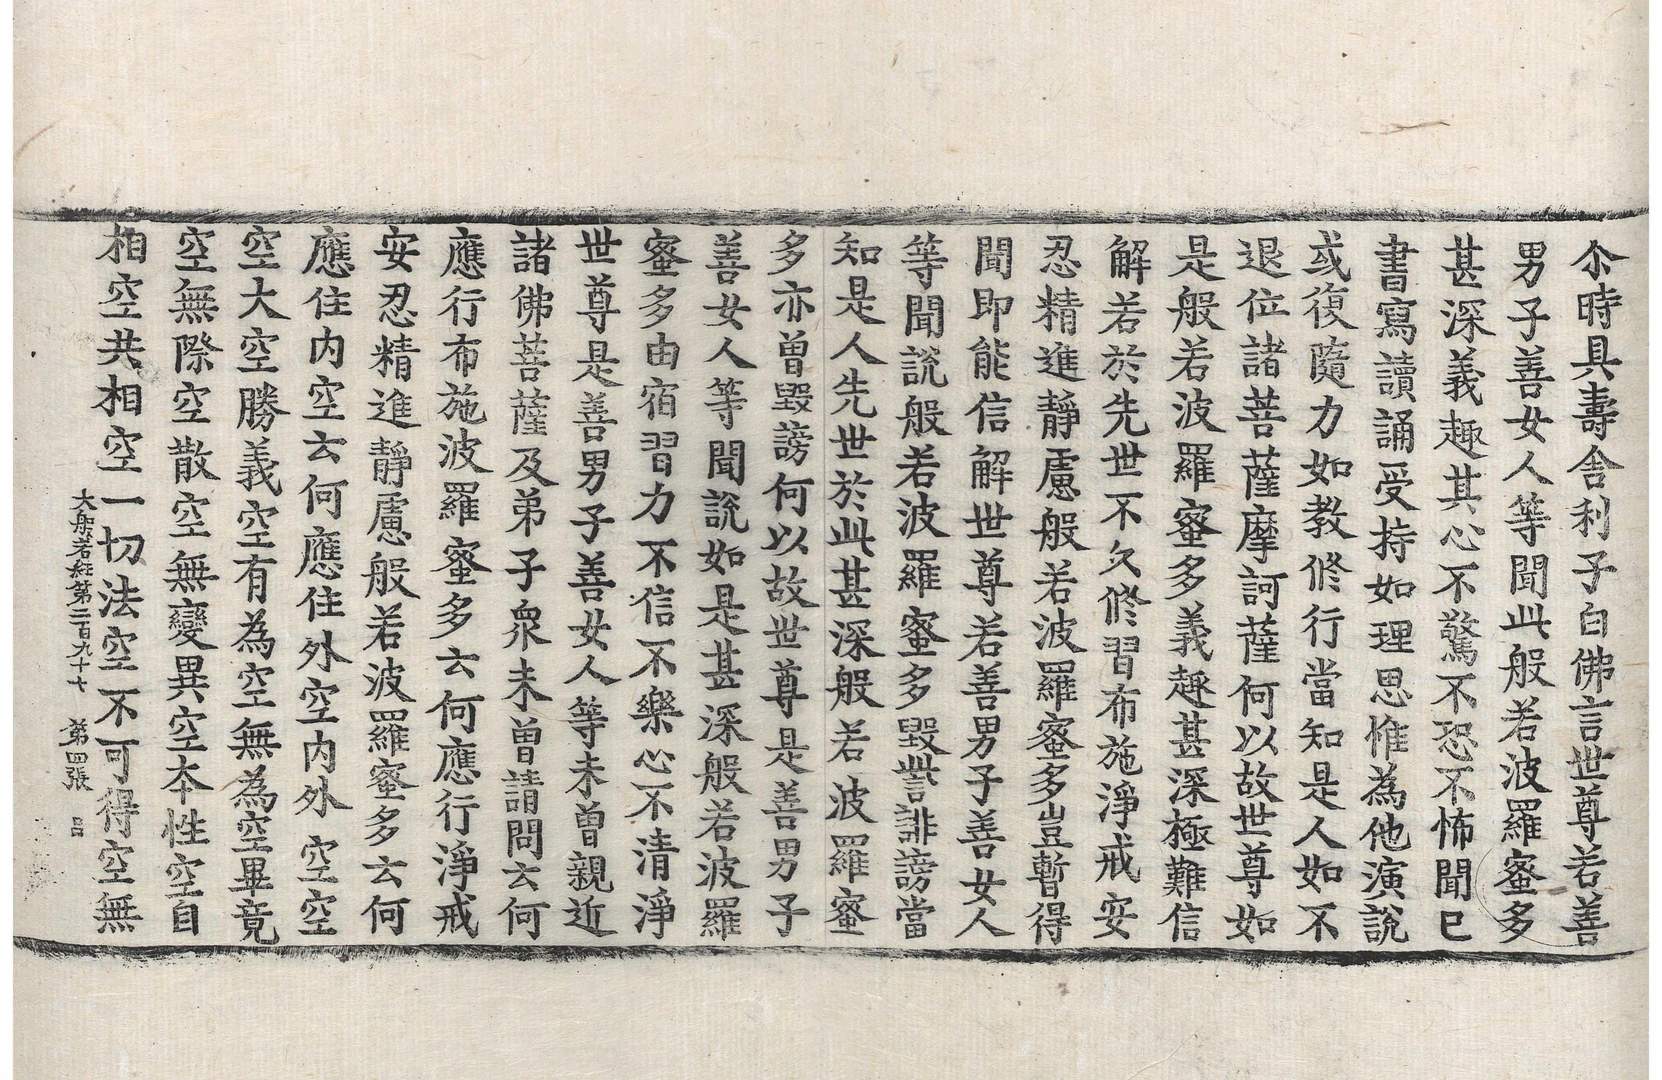 尒時具壽舍利子白佛言世尊若善
男子善女人等聞此般若波羅蜜多
甚深義趣其心不驚不恐不怖聞已
書寫讀誦受持如理思惟為他演說
或復隨力如教修行當知是人如不
退位諸菩薩摩訶薩何以故世尊如
是般若波羅蜜多義趣甚深極難信
解若於先世不久修習布施淨戒安
忍精進靜慮般若波羅蜜多豈暫得
聞即能信解世尊若善男子善女人
等聞說般若波羅蜜多毀訾誹謗當
知是人先世於此甚深般若波羅蜜
多亦曾毀謗何以故世尊是善男子
善女人等聞說如是甚深般若波羅
蜜多由宿習力不信不樂心不清淨
世尊是善男子善女人等未曾親近
諸佛菩薩及弟子衆未曾請問云何
應行布施波羅蜜多云何應行淨戒
安忍精進靜慮般若波羅蜜多云何
應住內空云何應住外空內外空空
空大空勝義空有為空無為空畢竟
空無際空散空無變異空本性空自
相空共相空一切法空不可得空無
大般若経第二百九十七 第四張 呂